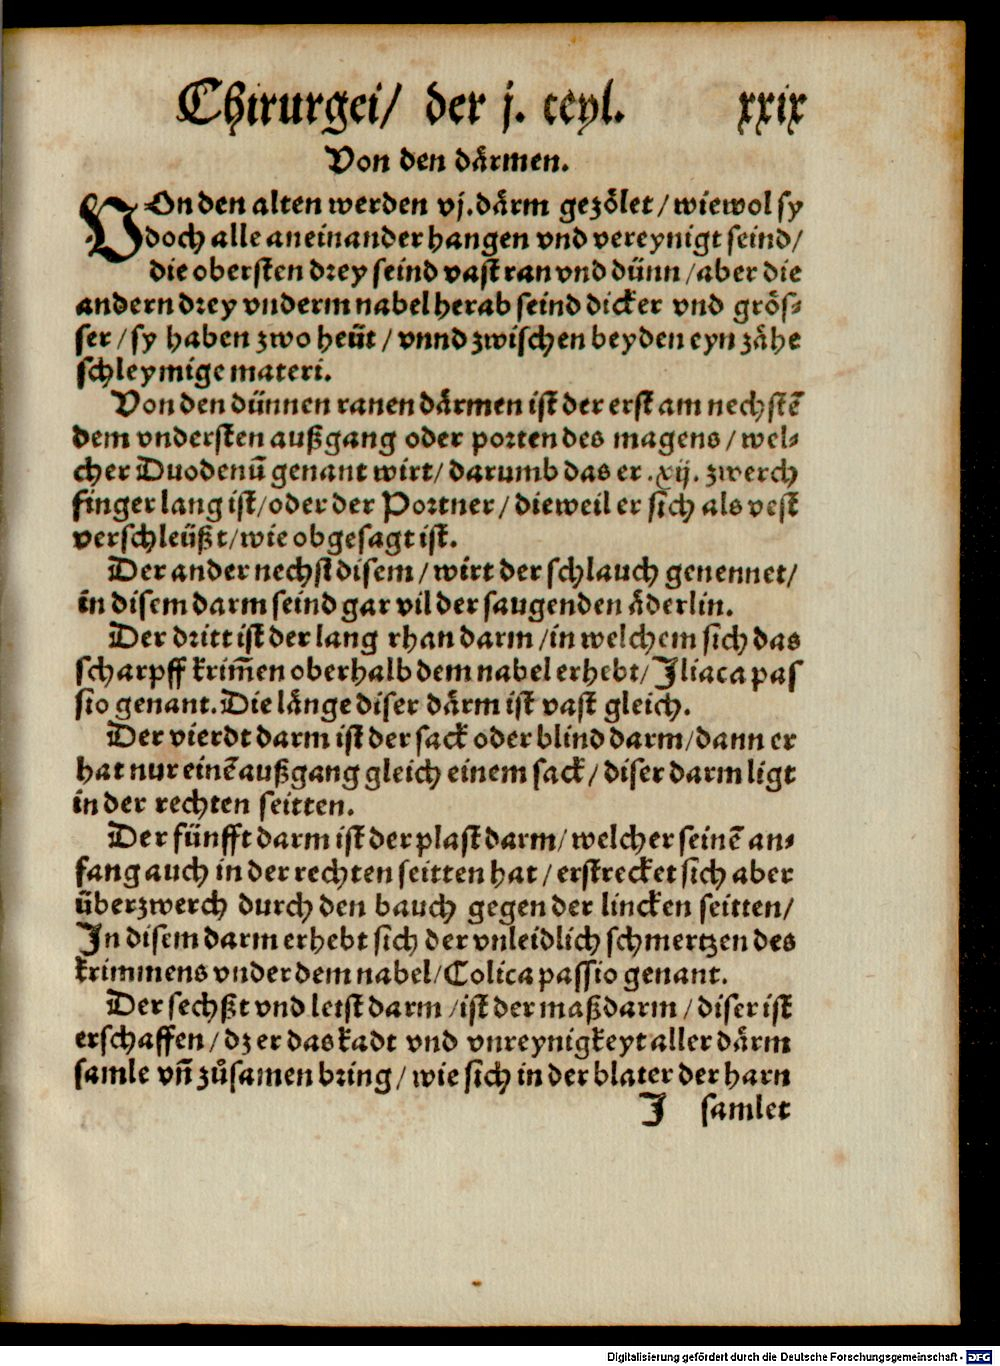 Chirurgei/ der j. teyl. xxix
Von den därmen.
VOn den alten werden vj. därm gezölet/ wiewol sy
doch alle aneinander hangen vnd vereynigt seind/
die obersten drey seind vast ran vnd dünn/ aber die
andern drey vnderm nabel herab seind dicker vnd grös⸗
ser/ sy haben zwo heüt/ vnnd zwischen beyden eyn zähe
schleymige materi.
Von den dünnen ranen därmen ist der erst am nechstē
dem vndersten außgang oder porten des magens/ wel⸗
cher Duodenū genant wirt/ darumb das er .xij. zwerch
finger lang ist/ oder der Portner/ dieweil er sich als vest
verschleüßt/ wie obgesagt ist.
Der ander nechst disem/ wirt der schlauch genennet/
in disem darm seind gar vil der saugenden äderlin.
Der dritt ist der lang rhan darm/ in welchem sich das
scharpff krim̄en oberhalb dem nabel erhebt/ Iliaca pas
sio genant. Die länge diser därm ist vast gleich.
Der vierdt darm ist der sack oder blind darm/ dann er
hat nur einē außgang gleich einem sack/ diser darm ligt
in der rechten seitten.
Der fünfft darm ist der plast darm/ welcher seinē an⸗
fang auch in der rechten seitten hat/ erstrecket sich aber
überzwerch durch den bauch gegen der lincken seitten/
In disem darm erhebt sich der vnleidlich schmertzen des
krimmens vnder dem nabel/ Colica passio genant.
Der sechßt vnd letst darm/ ist der maßdarm/ diser ist
erschaffen/ dz er das kadt vnd vnreynigkeyt aller därm
samle vn̄ zůsamen bring/ wie sich in der blater der harn
I samlet
Digitalisierung gefördert durch die Deutsche Forschungsgemeinschaft - DFG